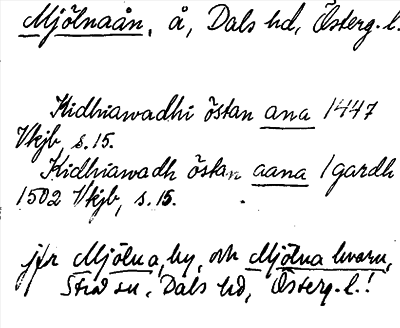 Mjölnaån, å, Dals hd, Österg. l.
Kidhiawadhi östan ana 1447
Vkjb, s. 15.
Kidhiawadh östan aana 1 gardh
1502 Vkjb, s. 15.
jfr Mjölna, by, och Mjölna kvarn,
Strå sn, Dals hd, Österg. l.!